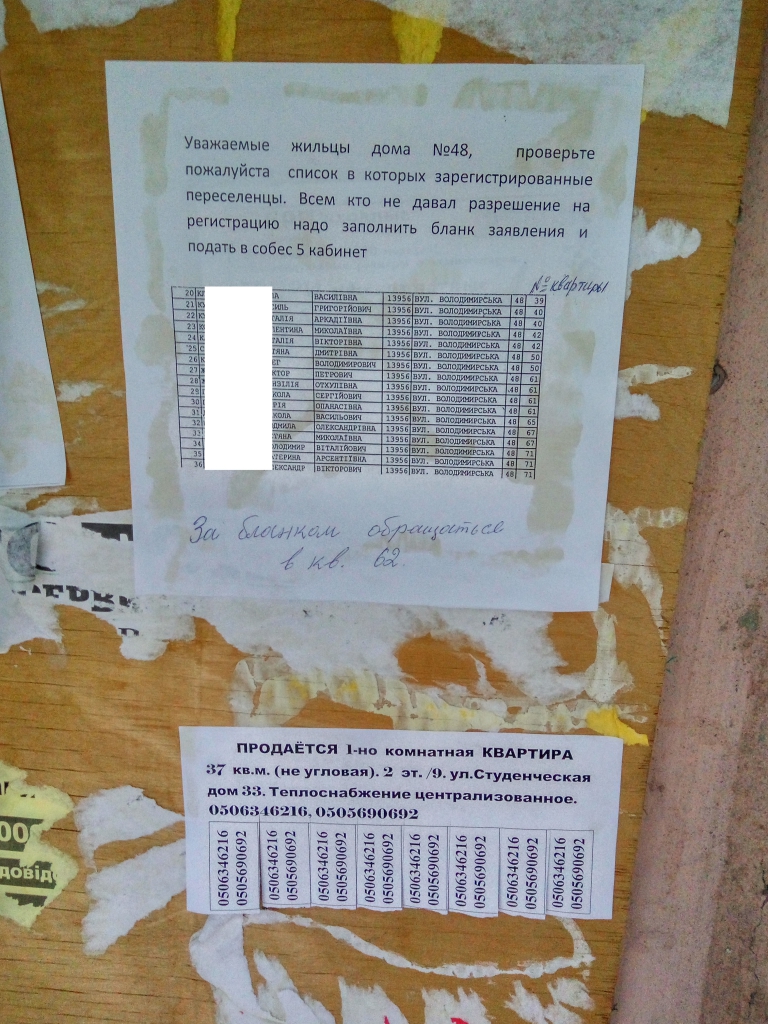 Уважаемые жильцы дома №48, проверьте
пожалуйста список в которых зарегистрированные
переселенцы. Всем кто не давал разрешение на
регистрацию надо заполнить бланк заявления и
подать в собес 5 кабинет
№ квартиры
20 ВАСИЛІВНА 13956 ВУЛ. ВОЛОДИМИРСЬКА 48 39
21 ГРИГОРІЙОВИЧ 13956 ВУЛ. ВОЛОДИМИРСЬКА 48 40
22 ТАЛІЯ АРКАДІЇВНА 13956 ВУЛ. ВОЛОДИМИРСЬКА 48 40
23 ЛЕНТИНА МИКОЛАЇВНА 13956 ВУЛ. ВОЛОДИМИРСЬКА 48 42
24 ТАЛІЯ ВІКТОРІВНА 13956 ВУЛ. ВОЛОДИМИРСЬКА 48 42
25 ТЯНА ДМИТРІВНА 13956 ВУЛ. ВОЛОДИМИРСЬКА 48 50
26 ВОЛОДИМИРОВИЧ 13956 ВУЛ. ВОЛОДИМИРСЬКА 48 50
27 КТОР ПЕТРОВИЧ 13956 ВУЛ. ВОЛОДИМИРСЬКА 48 61
28 НЗІЛІЯ ОТКУЛІВНА 13956 ВУЛ. ВОЛОДИМИРСЬКА 48 61
29 КОЛА СЕРГІЙОВИЧ 13956 ВУЛ. ВОЛОДИМИРСЬКА 48 61
30 РІЯ ОПАНАСІВНА 13956 ВУЛ. ВОЛОДИМИРСЬКА 48 61
31 КОЛА ВАСИЛЬОВИЧ 13956 ВУЛ. ВОЛОДИМИРСЬКА 48 65
32 ДМИЛА ОЛЕКСАНДРІВНА 13956 ВУЛ. ВОЛОДИМИРСЬКА 48 67
33 ТЯНА МИКОЛАЇВНА 13956 ВУЛ. ВОЛОДИМИРСЬКА 48 67
34 ЛОДИМИР ВІТАЛІЙОВИЧ 13956 ВУЛ. ВОЛОДИМИРСЬКА 48 71
35 АТЕРИНА АРСЕНТІЇВНА 13956 ВУЛ. ВОЛОДИМИРСЬКА 48 71
36 ЕКСАНДР ВІКТОРОВИЧ 13956 ВУЛ. ВОЛОДИМИРСЬКА 48 71
За бланком обращаться
в кв. 62.
ПРОДАЁТСЯ 1-но комнатная КВАРТИРА
37 кв.м. (не угловая). 2 эт. /9. ул.Студенческая
дом 33. Теплоснабжение централизованное.
0506346216, 0505690692
0506346216
0505690692
0506346216
0505690692
0506346216
0505690692
0506346216
0505690692
0506346216
0505690692
0506346216
0505690692
0506346216
0505690692
0506346216
0505690692